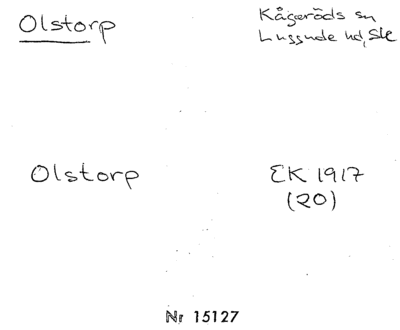 Olstorp
Kågeröds sn
Luggude hd, Sk
Olstorp
EK 1917
(20)
Nr 15127